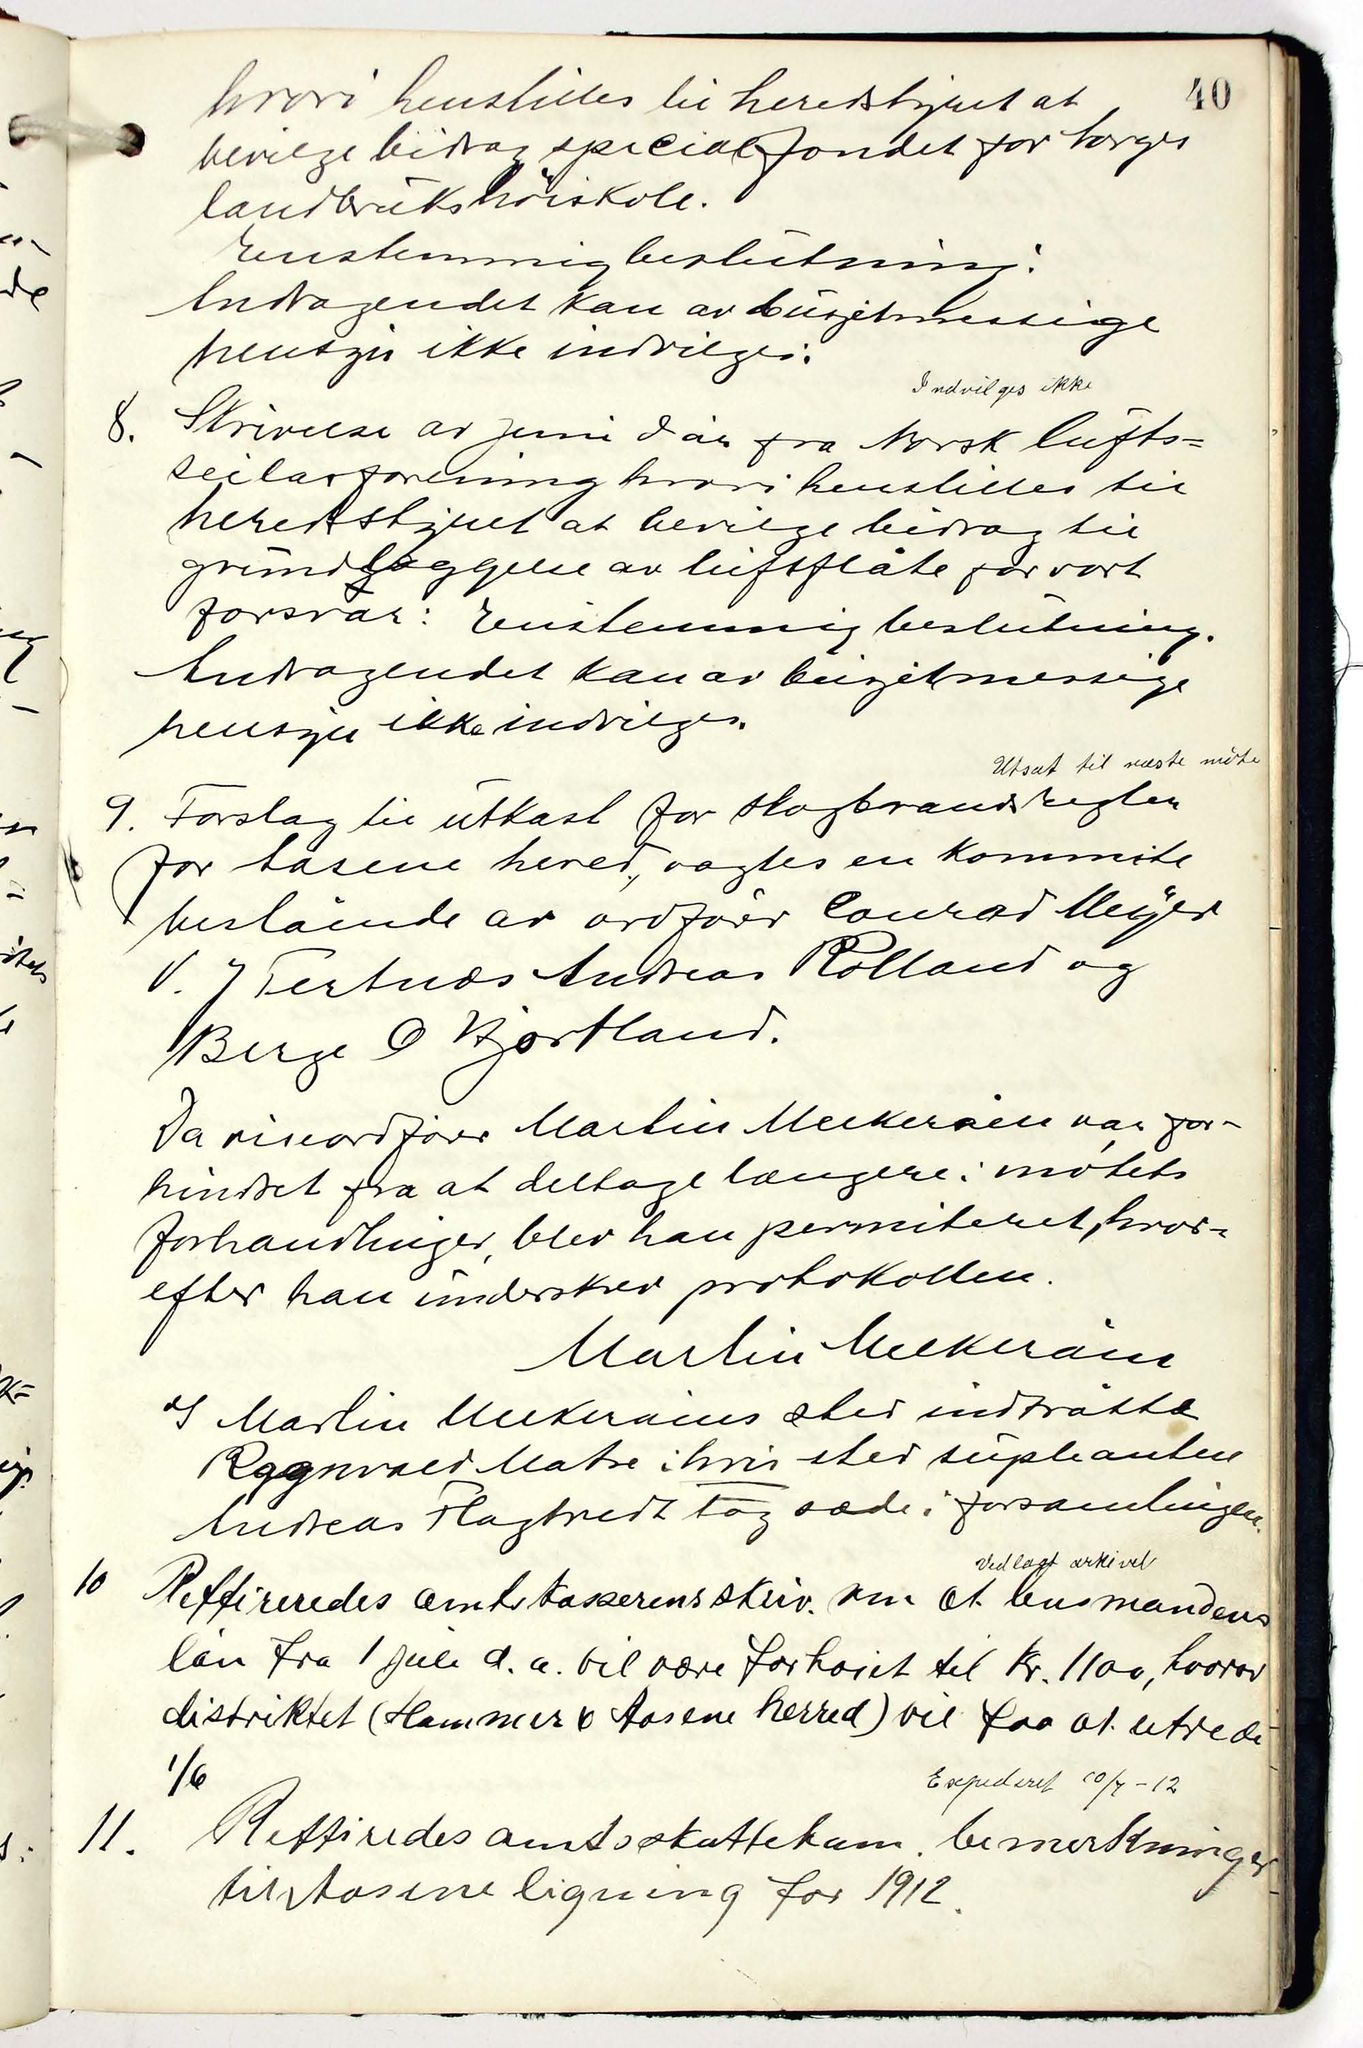 40
hvori henstilles til heredstyret at
bevilge bidrag specialfondet for Norges
landbrukshöiskole.
Enstemmig beslutning:
Andragendet kan av busjetmessige
hensyn ikke indvilges.
Indvilges ikke
8. Skrivelse av juni d år fra Norsk lufts=
seilasforening hvori henstilles til
heredsstyret at bevilge bidrag til
grundlæggelse av luftsflåte for vort
forsvar: Enstemmig beslutning.
Andragendet kan av busjetmessige
hensyn ikke indvilges.
Utsat til næste möte
9. Forslag til utkast for skogbrandsregler
for Aasene hered, valgtes en kommite
bestående av ordförer Conrad Meÿer
V. J Tertnæs Andreas Rolland og
Berge O Hjortland.
Da viseordförer Martin Mukeråen var for-
hindret fra at deltage længere i mötets
forhandlinger, blev han permiteret, hvor-
efter han underskrev protokollen.
Martin Mukeråen
I Martin Mukeråens sted indtråtte
Raggnvald Matre i hvis sted supleanten
Andreas Flagtvedt tog sæde i forsamlingen.
Vedlagt arkivet
10 Reffireredes amtskasserens skriv. om at lensmandens
lön fra 1 juli d. a. vil være forhöiet til kr. 1100, hvorav
distriktet (Hammer & Aasene herred) vil faa at utrede
1/6
Expederet 10/7-12
11. Reffiredes amtsskattekom. bemerkninger
til Aasene ligning for 1912.